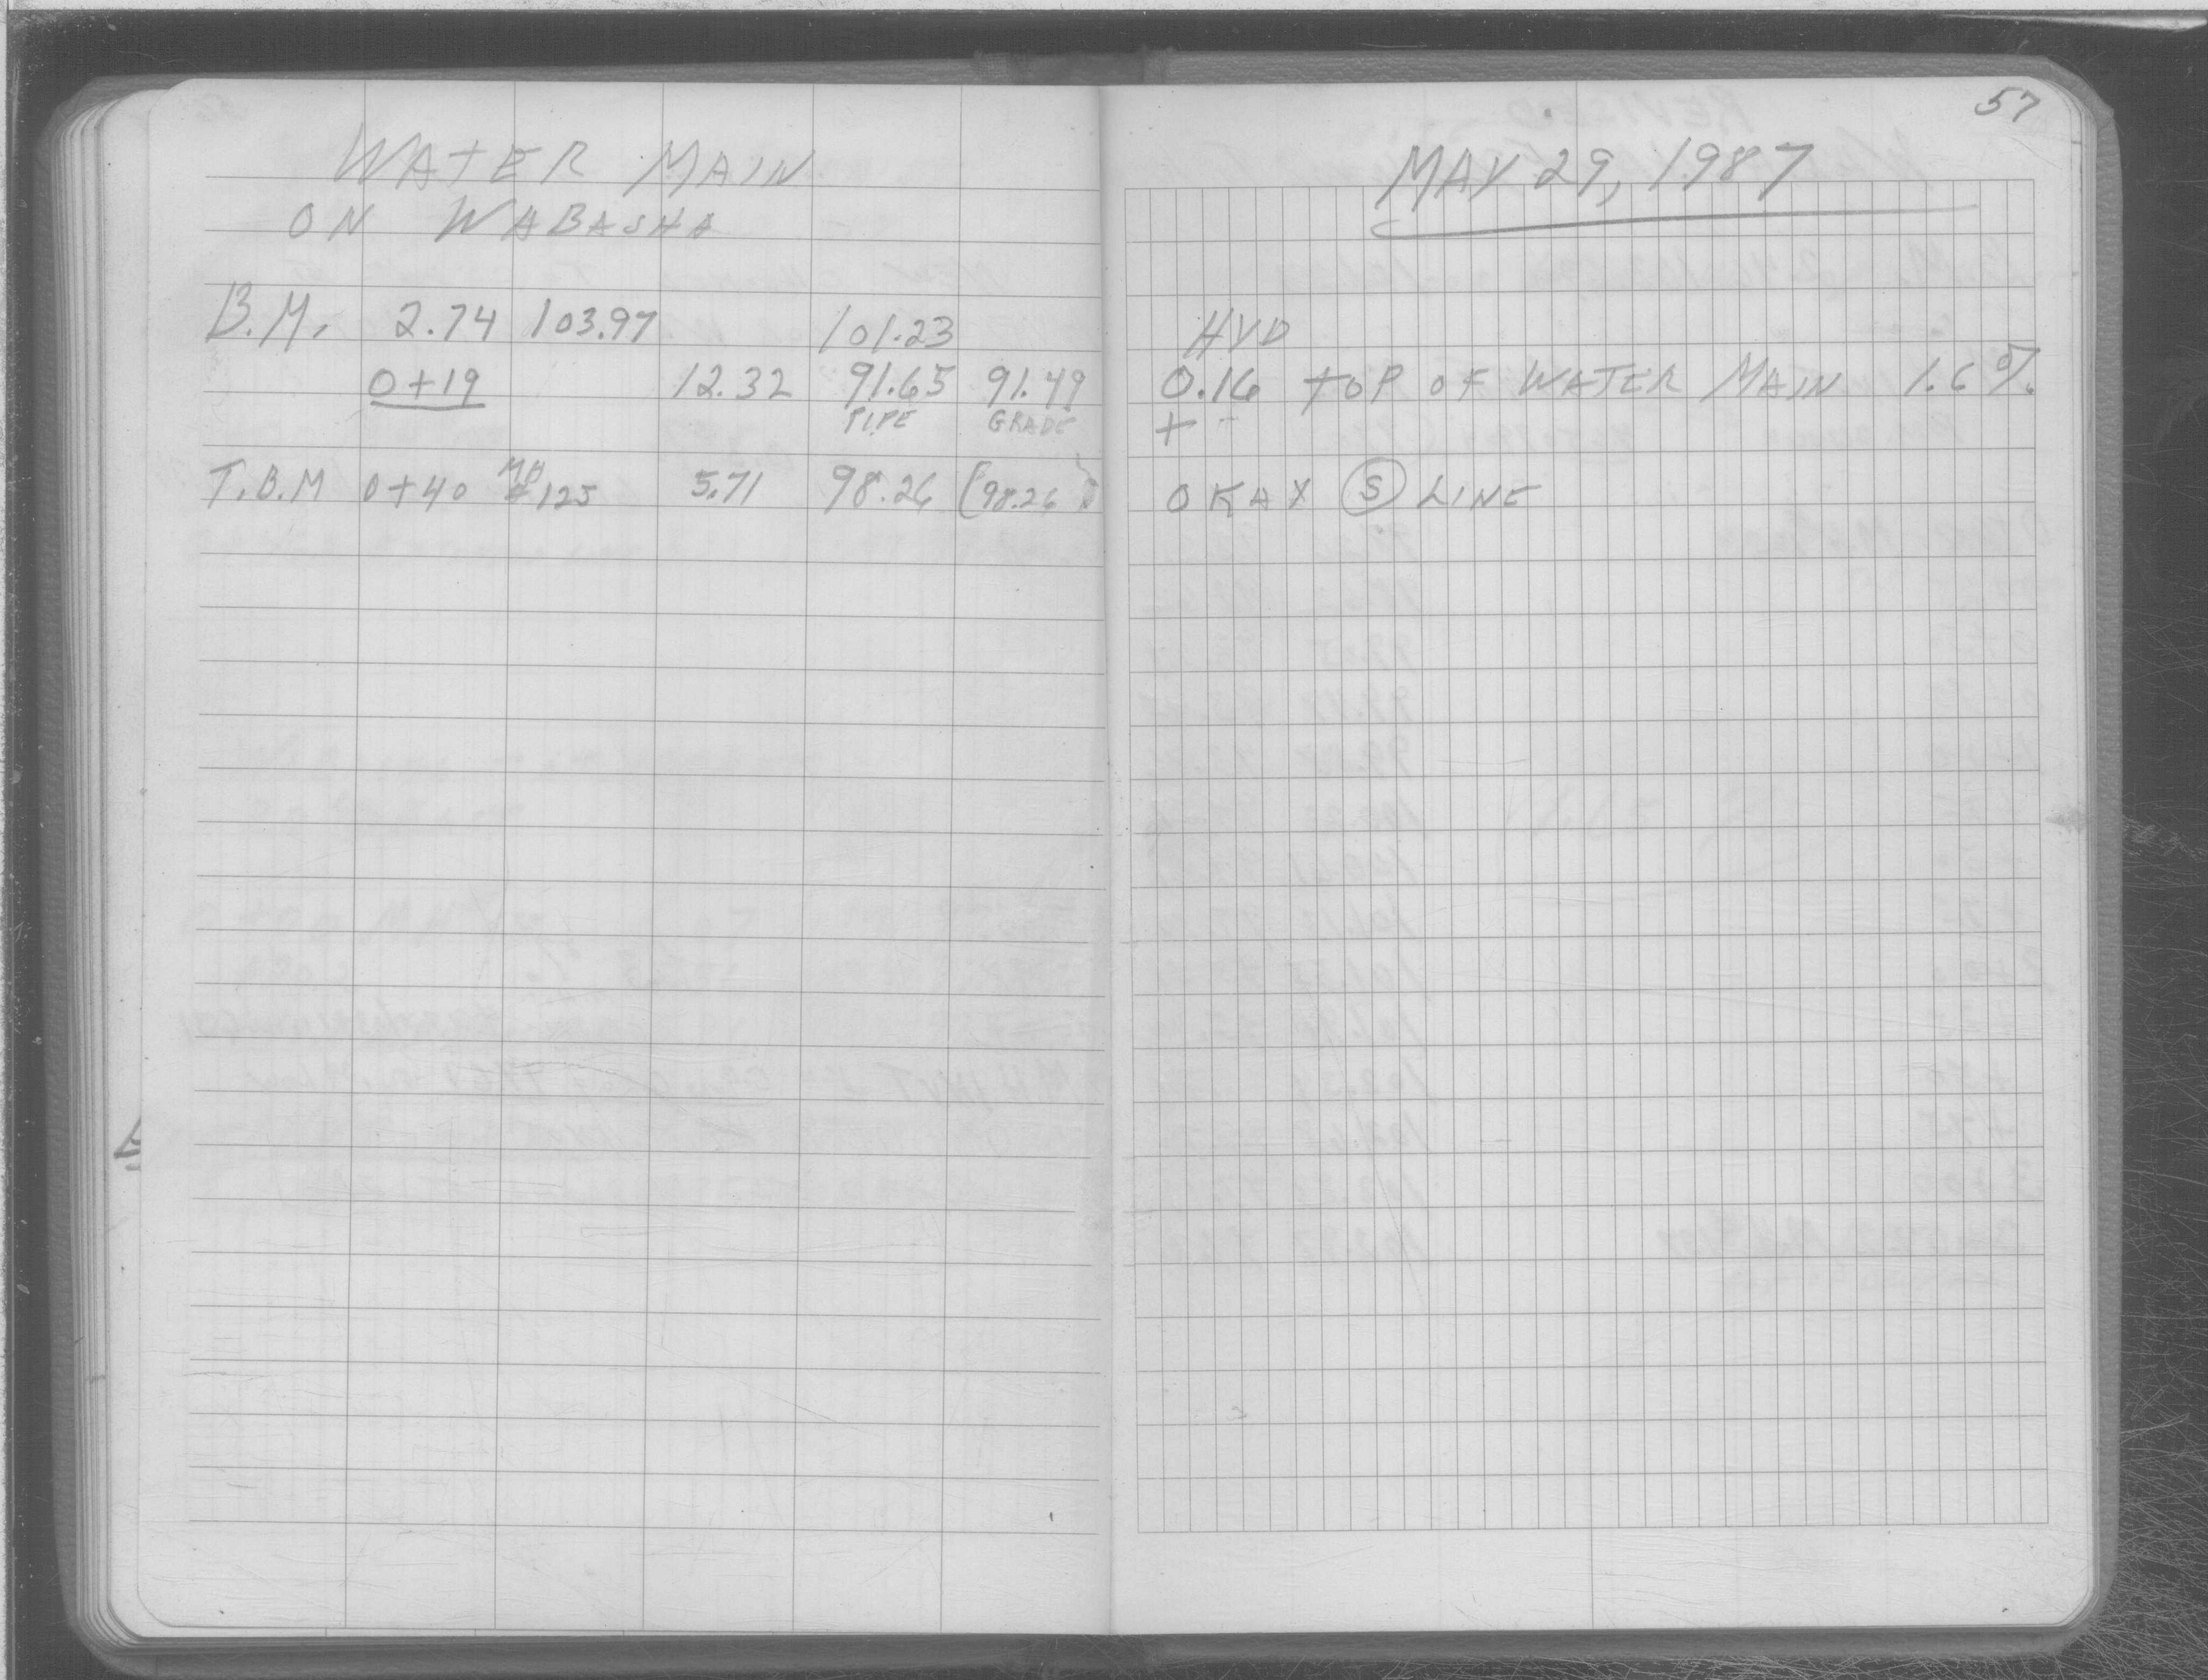 57
WATER MAIN
ON WABASHA
MAY 29, 1987
B.M. 2.74 103.97 101.23 HYD
0+19 12.32 91.65 91.49 0.16 TOP OF WATER MAIN 1.6%
PIPE GRADE + -
T.B.M 0+40 MH #125 5.71 98.26 (98.26) OKAY (S) LINE